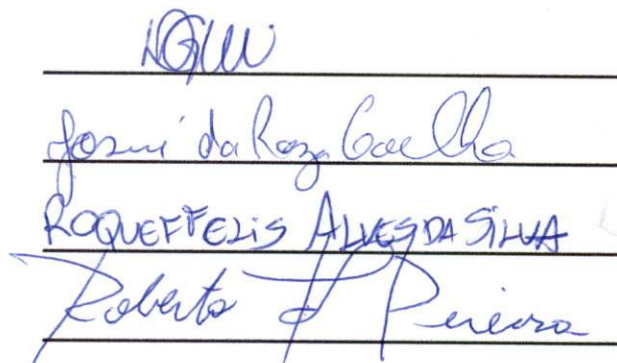 Josué da Roza Coelho
ROQUEFFELIS ALVES DA SILVA
Roberto Pereira